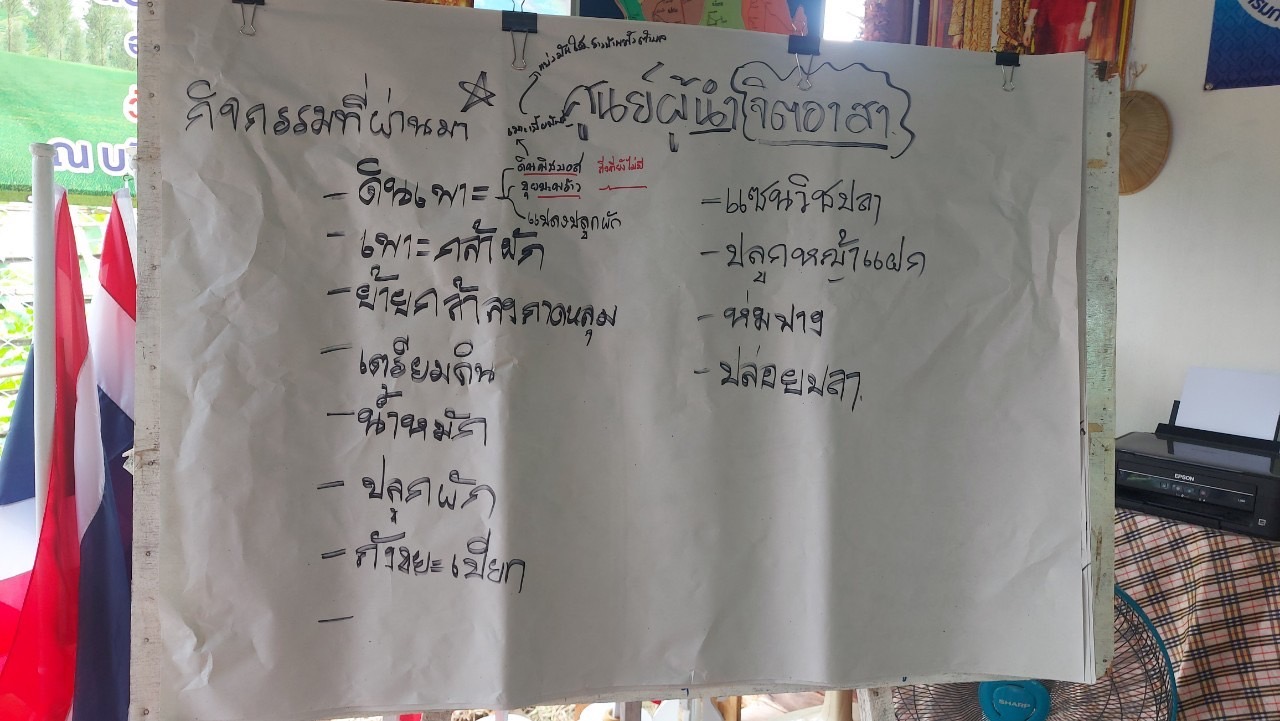 กิจกรรมที่ผ่านมา
ศูนย์ผู้นำจิตอาสา
- ดินเพาะ
ดินพีชมอส
ที่ที่ยังไม่มี
ขุยมะพร้าว
แปลงปลูกผัก
- เพาะกล้าผัก
- ย้ายกล้าลงถาดหลุม
- เตรียมดิน
- น้ำหมัก
- ปลูกผัก
- ถังขยะเปียก
-
- แซนวิชปลา
- ปลูกหญ้าแฝก
- ห่มฟาง
- ปล่อยปลา
EPSON
SHARP